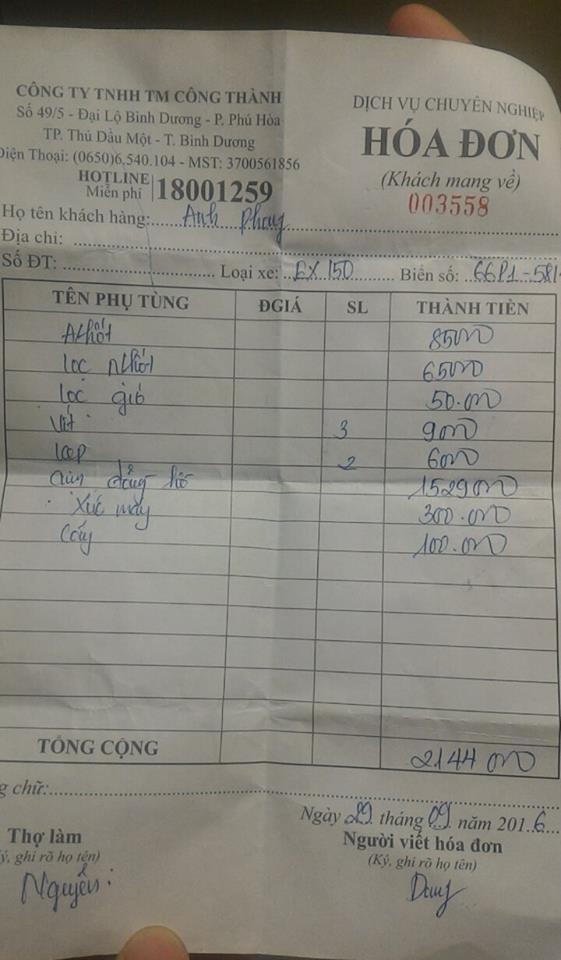 CÔNG TY TNHH TM CÔNG THÀNH
Số 49/5 - Đại Lộ Bình Dương - P. Phú Hòa
TP. Thủ Dầu Một - T. Bình Dương
Điện Thoại: (0650)6,540.104 - MST: 3700561856
HOTLINE Miễn phí 18001259
DỊCH VỤ CHUYÊN NGHIỆP
HÓA ĐƠN
(Khách mang về)
003558
Họ tên khách hàng: Anh Phong
Địa chỉ:
Số ĐT: Loại xe: EX 150 Biển số: 66P1-581
TÊN PHỤ TÙNG ĐGIÁ SL THÀNH TIỀN
Nhớt 85000
lọc nhớt 65000
lọc gió 50.000
Vít 3 9000
2 6000
đồng hồ 1529000
Xúc máy 300.000
Công 100.000
TỔNG CỘNG 2144000
chữ:
Ngày 29 tháng 09 năm 2016
Thợ làm
ý, ghi rõ họ tên)
Người viết hóa đơn
(Ký, ghi rõ họ tên)